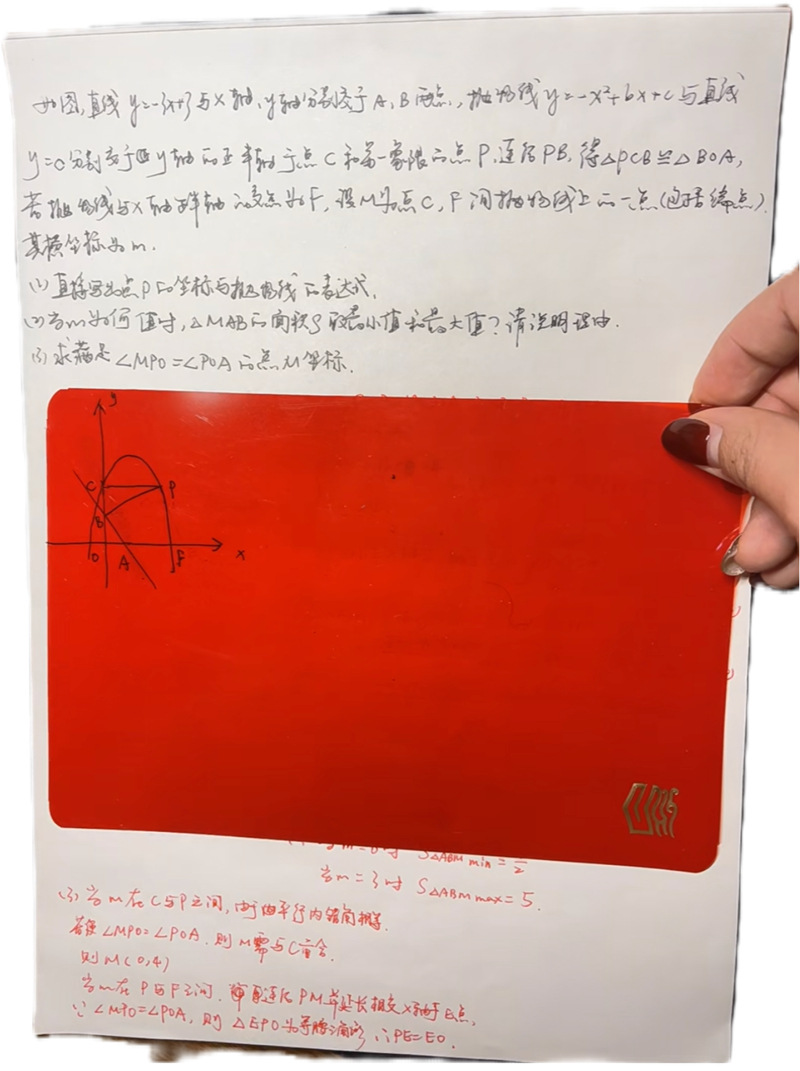 如图,直线 y=-3x+3 与 x 轴、y轴分别交于 A,B 两点,抛物线 y=-x²+bx+c 与直线
y=c 分别交于 y 轴的正半轴于点 C 和第一象限的点 P,连结 PB,得△PCB≌△BOA,
若抛物线与 x 轴半轴的交点为F,设M为点 C,F 间抛物线上的一点(包括端点),
其横坐标为 m.
(1) 直接写出点 P的坐标与抛物线的表达式.
(2) 当m为何值时,△MAB的面积S取最小值和最大值?请说明理由.
(3) 求满足∠MPO=∠POA 的点M坐标.
y
C
P
B
O
A
F
x
当m=0时 S△ABM min = /2
当m=3时 S△ABM max = 5.
(3) 当m在C与P之间,由平行内错角相等.
若使∠MPO=∠POA,则M需与C重合.
则 M(0,4)
当m在P与F之间,连结PM并延长相交x轴于E点,
∵ ∠MPO=∠POA,则△EPO为等腰三角形,∴PE=EO.